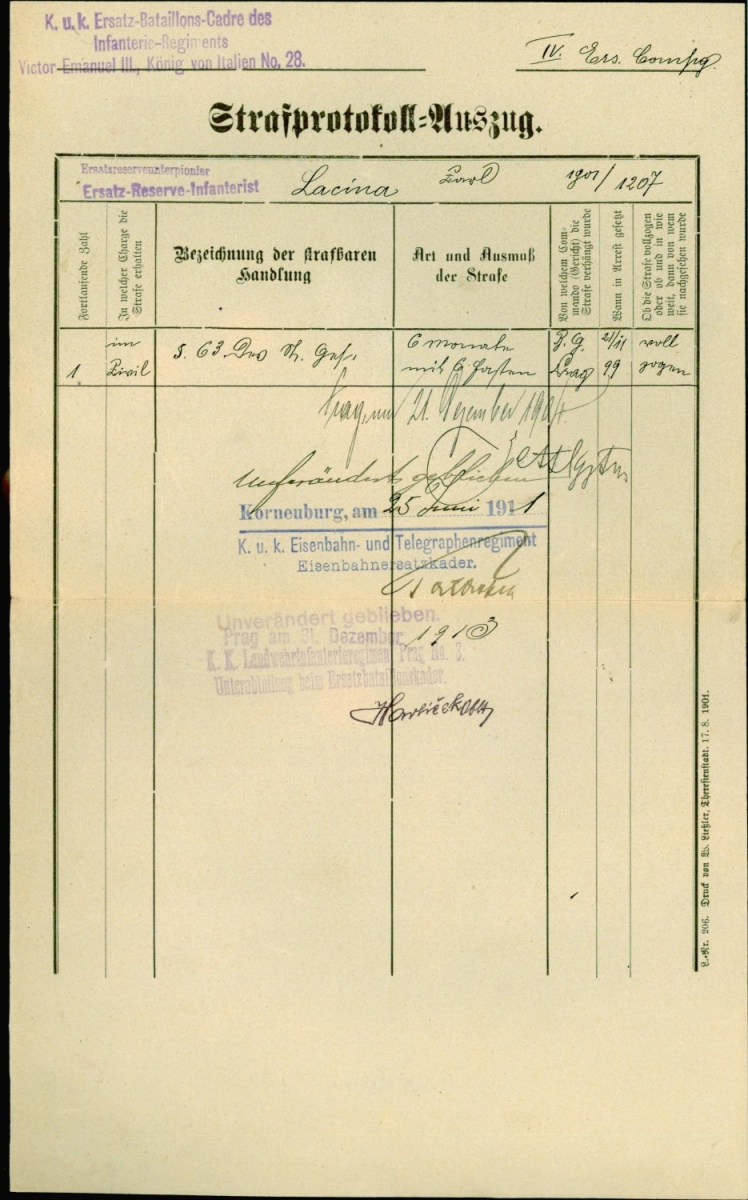 K. u. k. Ersatz-Bataillons-Cadre des
Infanterie-Regiments
Victor Emanuel III., König von Italien No. 28.
IV. Ers. Compg.
Strafprotokoll=Auszug.
Ersatzreserveunterpionier
Ersatz-Reserve-Infanterist Lacina Karl 1901/1207
Fortlaufende Zahl
In welcher Charge die
Strafe erhalten
Bezeichnung der strafbaren
Handlung
Art und Ausmaß
der Strafe
Von welchem Com-
mando (Gericht) die
Strafe verhängt wurde
Wann in Arrest gesetzt
Ob die Strafe vollzogen
oder ob und in wie
weit, dann von wem
sie nachgesehen wurde
1
im
Zivil
§. 63. Des St. Ges.
6 Monate
mit 6 Fasten
Prag
21/11
99
voll
zogen
Prag, am 21. Dezember 1904.
Unverändert geblieben
Korneuburg, am 25 Juni 1911
K. u. k. Eisenbahn- und Telegraphenregiment
Eisenbahnersatzkader.
Unverändert geblieben.
Prag am 31. Dezember 1913
K. K. Landwehrinfanterieregiment Prag No. 8.
Unterabteilung beim Ersatzbataillonskader.
L.-Nr. 206. Druck von W. Ließler, Theresienstadt. 17. 8. 1901.